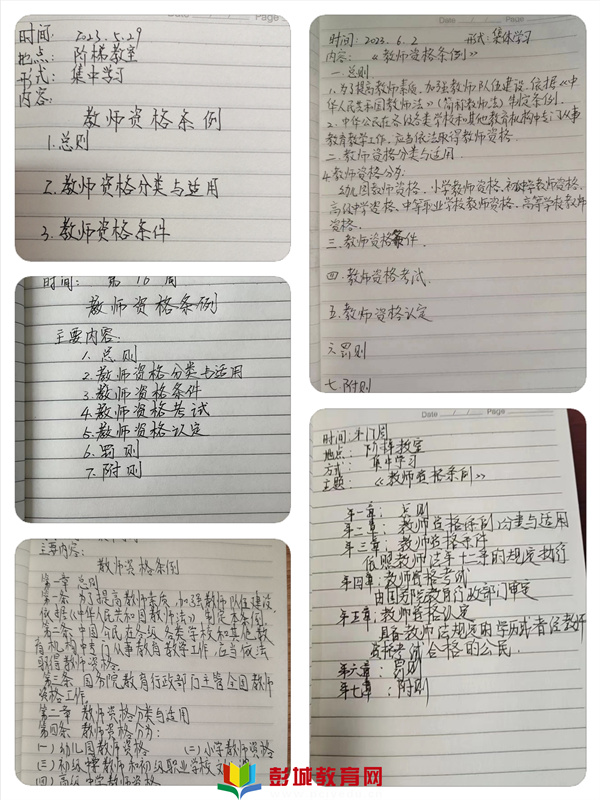 Date / / Page
时间: 2023.5.29
地点: 阶梯教室
形式: 集中学习
内容:
教师资格条例
1.总则
2.教师资格分类与适用
3.教师资格条件
时间: 第16周
教师资格条例
主要内容:
1.总则
2.教师资格分类与适用
3.教师资格条件
4.教师资格考试
5.教师资格认定
6.罚则
7.附则
主要内容:
教师资格条例
第一章 总则
第一条 为了提高教师素质,加强教师队伍建设
依据《中华人民共和国教师法》制定本条例.
第二条 中国公民在各级各类学校和其他教
育机构中专门从事教育教学工作,应当依法
取得教师资格.
第三条 国务院教育行政部门主管全国教师
资格工作.
第二章 教师资格分类与适用
第四条 教师资格分为:
(一)幼儿园教师资格 (二)小学教师资格
(三)初级中学教师和初级职业学校文
四)高级中学教师资格
时间:2023.6.2 形式:集体学习
内容: 《教师资格条例》
一.总则
1.为了提高教师素质,加强教师队伍建设,依据《中
华人民共和国教师法》(简称教师法)制定条例.
2.中华公民在各级各类学校和其他教育机构专门从事
教育教学工作,应当依法取得教师资格.
二.教师资格分类与适用.
4.教师资格分为:
幼儿园教师资格,小学教师资格,初级中学教师资格,
高级中学资格,中等职业学校教师资格,高等学校教师
资格.
三.教师资格条件.
四.教师资格考试.
五.教师资格认定
六罚则
七.附则
Date / / Page
时间:第17周
地点: 阶梯教室
方式: 集中学习
主题: 《教师资格条例》
第一章: 总则
第二章: 教师资格条例分类与适用
第三章: 教师资格条件
依照教师法第十二条的规定执行
第四章:教师资格考试
由国务院教育行政部门审定
第五章:教师资格认定
具备教师法规定的学历或者经教师
资格考试合格的公民.
第六章:罚则
第七章:附则
彭城教育网